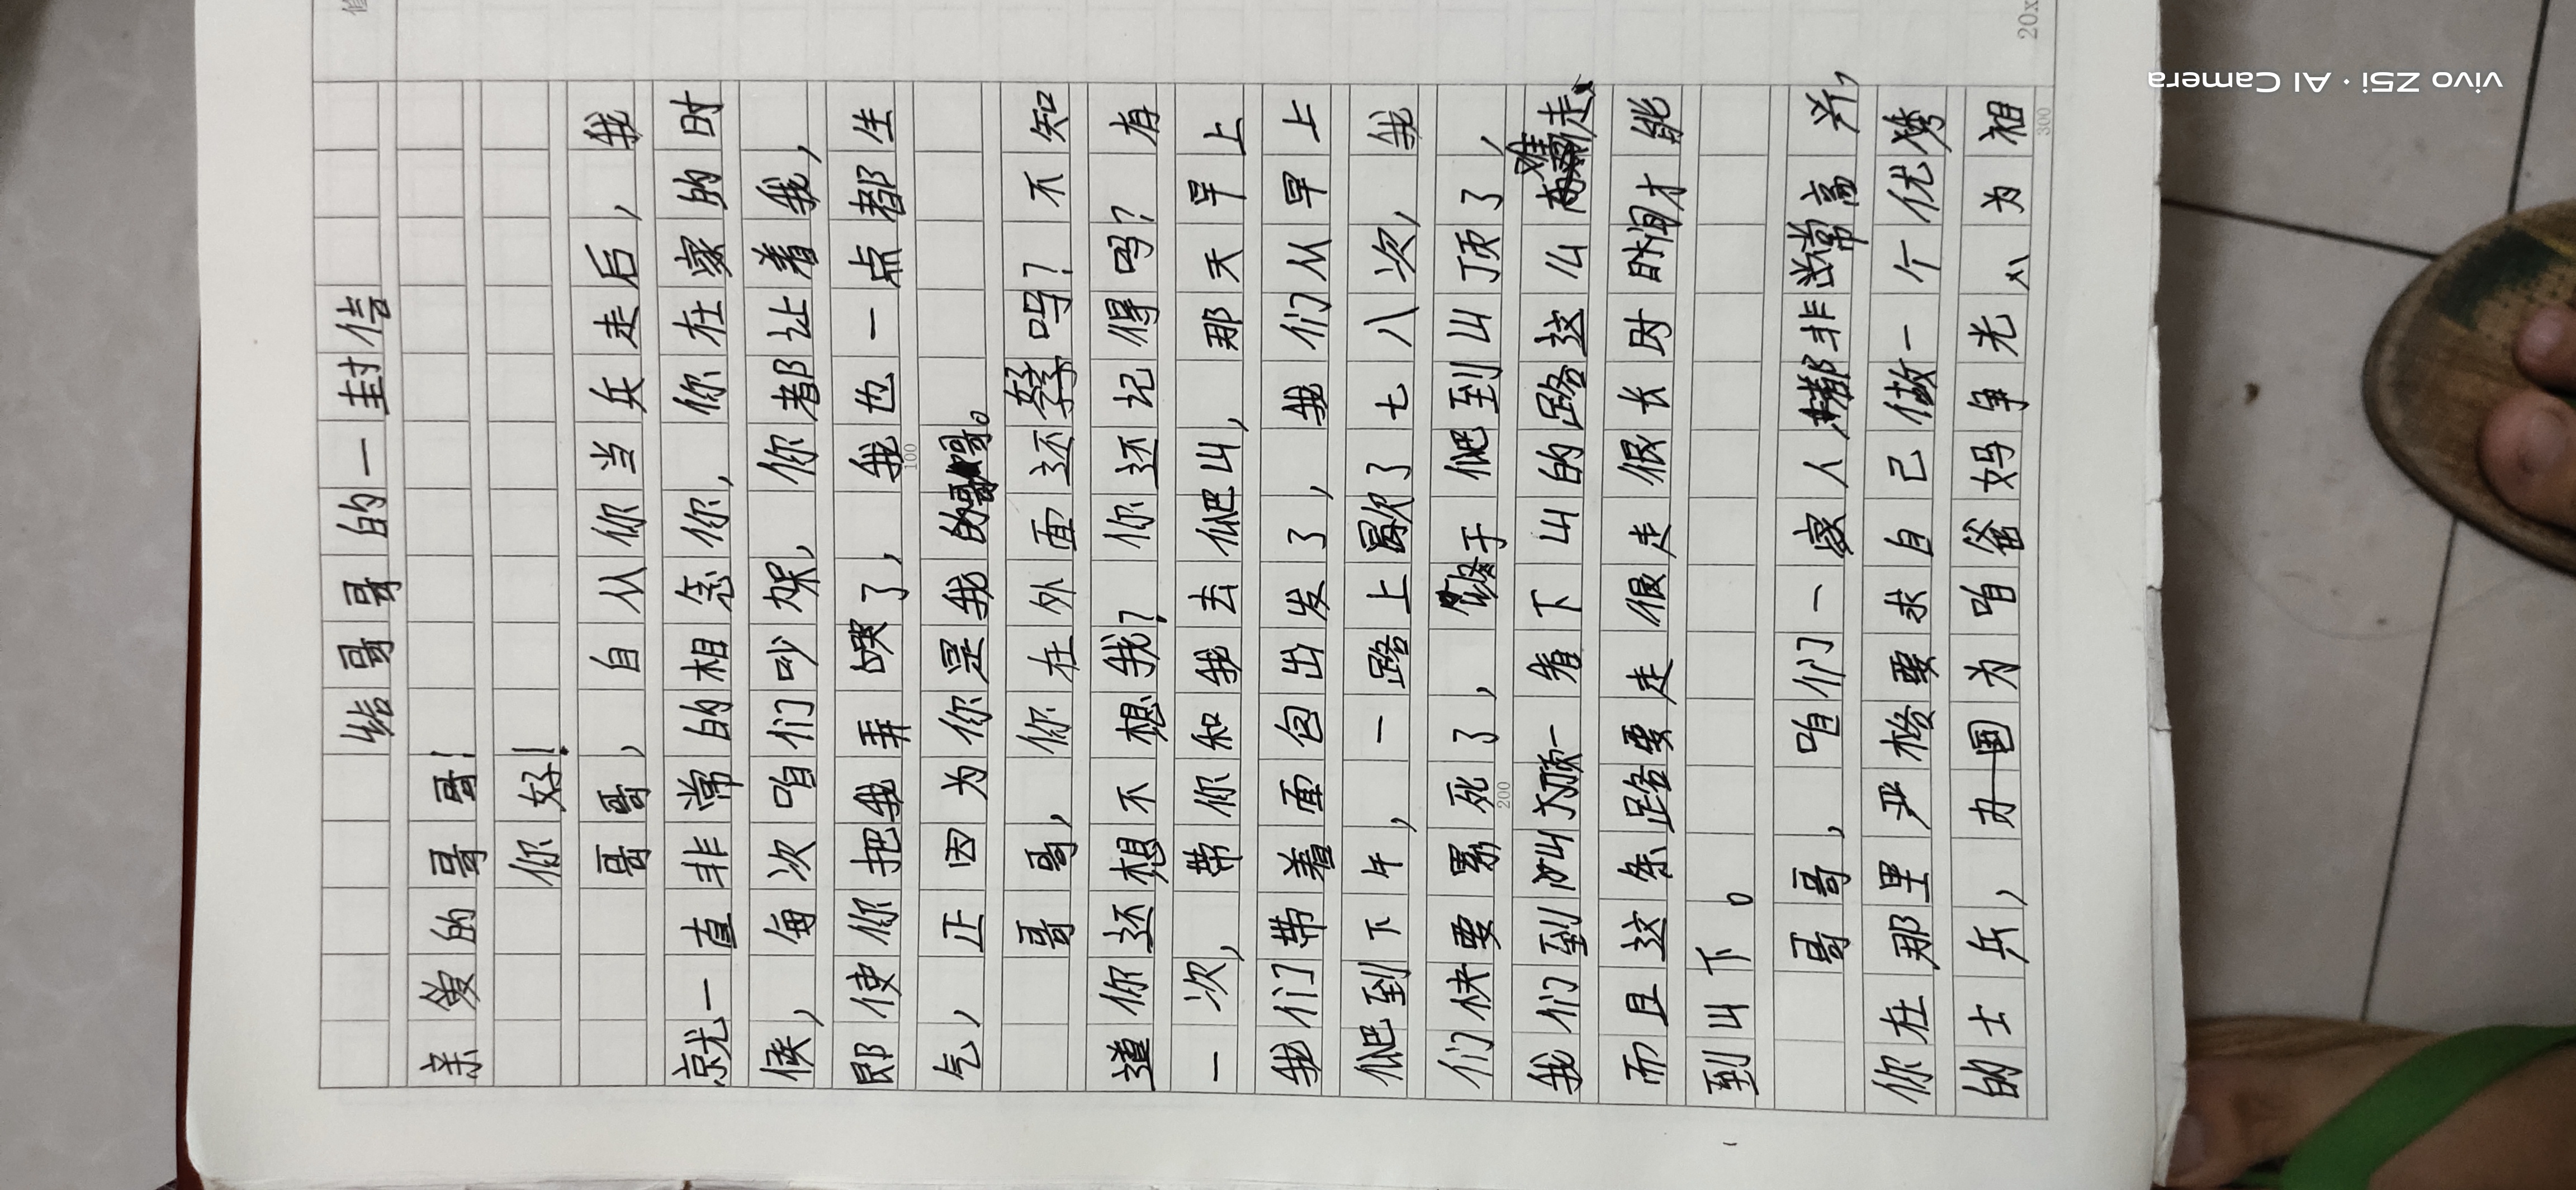 给哥哥的一封信
亲爱的哥哥！
你好！
哥哥，自从你当兵走后，我
就一直非常的相念你，你在家的时
候，每次咱们吵架，你都让着我，
即使你把我弄哭了，我也一点都生
气，正因为你是我的哥哥。
哥哥，你在外面还好吗？不知
道你还想不想我？你还记得吗？有
一次，带你和我去爬山，那天早上
我们带着面包出发了，我们从早上
爬到下午，一路上歇了七八次，我
们快要累死了，终于爬到山顶了，
我们到山顶一看下山的路这么难走，
而且这条路要走很走很长时时间才能
到山下。
哥哥，咱们一家人都非常高兴，
你在那里严格要求自己做一个优秀
的士兵，为国为咱爸妈争光，为祖
100
200
300
20x
vivo Z5i · AI Camera